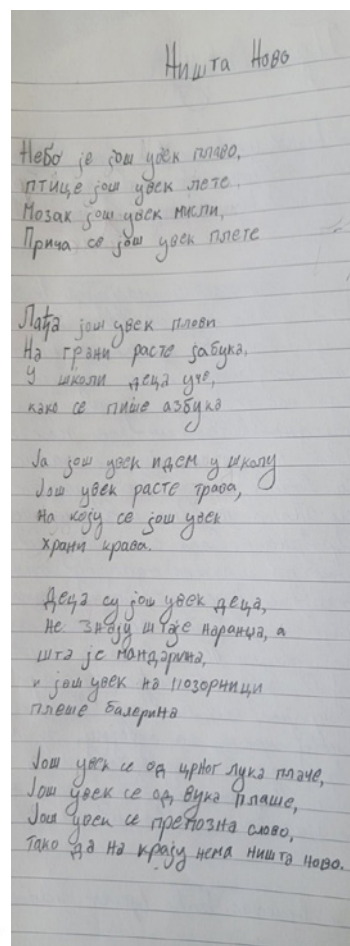 Ништа Ново
Небо је још увек плаво,
птице још увек лете.
Мозак још увек мисли,
Прича се још увек плете
Лађа још увек плови
На грани расте јабука.
У школи деца уче,
како се пише азбука
Ја још увек идем у школу
Још увек расте трава,
на коју се још увек
храни крава.
Деца су још увек деца,
не знају штаје наранџа, а
шта је мандарина,
и још увек на позорници
плеше балерина
Још увек се од црног лука плаче,
Још увек се од вука плаше,
Још увек се препозна слово,
тако да на крају нема ништа ново.